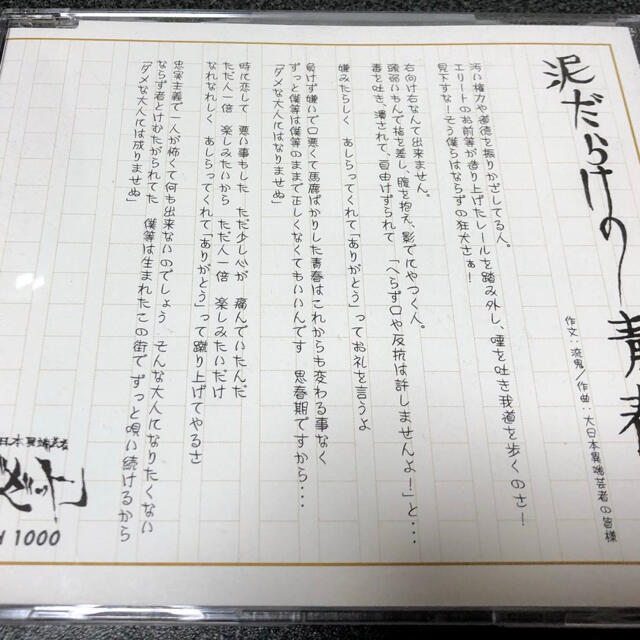 泥だらけの青春
作文：流鬼／作曲：大日本異端芸者の皆様
汚い権力や道徳を振りかざしてる人。
エリートのお前等が造り上げたレールを踏み外し、唾を吐き我道を歩くのさ！
見下すな！そう僕らはならずの狂犬さぁ！
右向け右なんて出来ません。
頭弱いもんで指を差し、腹を抱え、影でにやつく人。
毒を吐き、潰されて、自由けずられて 「へらず口や反抗は許しませんよ！」と・・・
嫌みたらしく あしらってくれて「ありがとう」ってお礼を言うよ
負けず嫌いで口悪くて馬鹿ばかりした青春はこれからも変わる事なく
ずっと僕等は僕等のままで正しくなくてもいいんです 思春期ですから・・・
「ダメな大人にはなりませぬ」
時に恋して 悪い事もした ただ少し心が 痛んでいたんだ
ただ人一倍 楽しみたいから ただ人一倍 楽しみたいだけ
なれなれしく あしらってくれて「ありがとう」って蹴り上げてやるさ
忠実主義で一人が怖くて何も出来ないのでしょう そんな大人になりたくない
ならず者とけむたがられてた 僕等は生まれたこの街でずっと唄い続けるから
「ダメな大人には成りませぬ」
日本異端芸者
1000